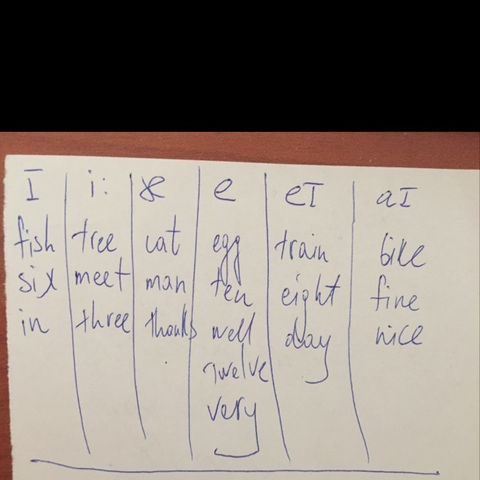 I i: æ e eI aI
fish tree cat egg train bike
six meet man ten eight fine
in three thanks well day nice
twelve
very